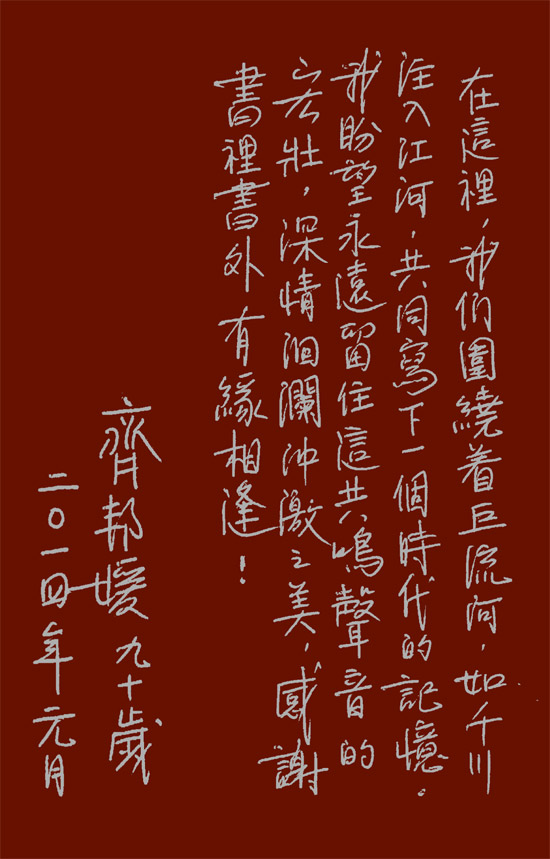 在這裡，我們圍繞着巨流河，如千川
注入江河，共同寫下一個時代的記憶。
我盼望永遠留住這共鳴聲音的
宏壯，深情洄瀾沖激之美，感謝
書裡書外有緣相逢！
齊邦媛 九十歲
二〇一四年元月